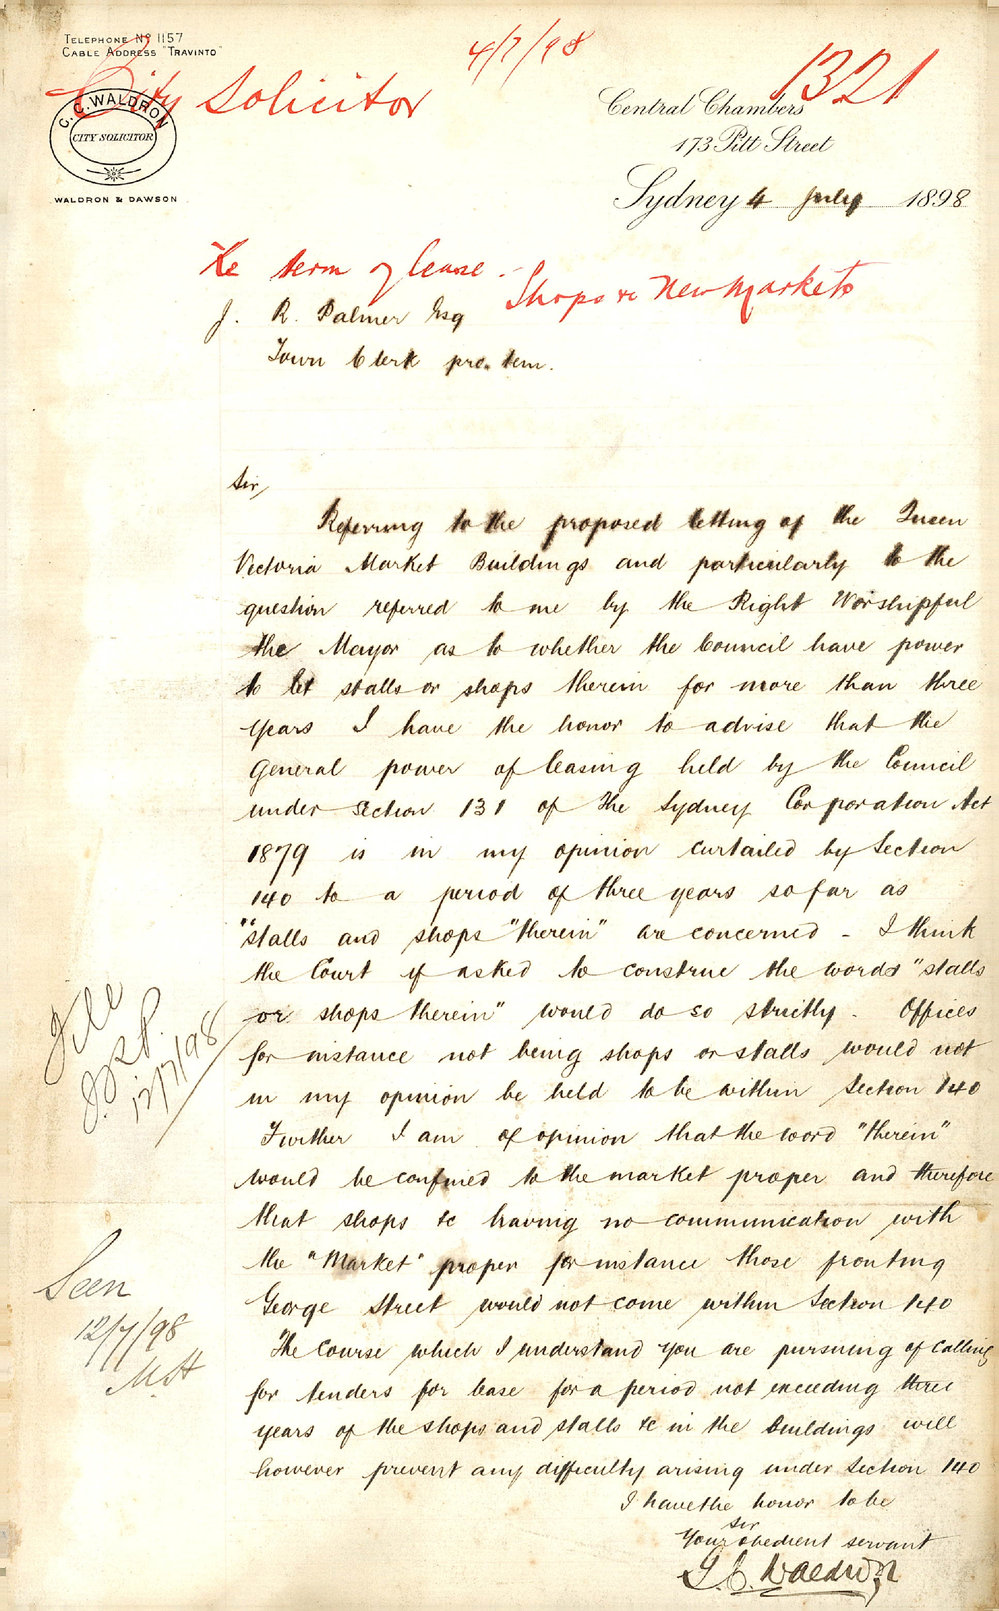 TELEPHONE Nº 1157
CABLE ADDRESS "TRAVINTO"
4/7/98
1321
City Solicitor
C. C. WALDRON
CITY SOLICITOR
WALDRON & DAWSON
Central Chambers
173 Pitt Street
Sydney 4 July 1898
Re term of lease -
Shops &c New Markets
J. R. Palmer Esq
Town Clerk pro. tem.
Sir,
Referring to the proposed letting of the Queen
Victoria Market Buildings and particularly to the
question referred to me by the Right Worshipful
the Mayor as to whether the Council have power
to let stalls or shops therein for more than three
years I have the honor to advise that the
General power of leasing held by the Council
under Section 131 of The Sydney Corporation Act
1879 is in my opinion curtailed by Section
140 to a period of three years so far as
"stalls and shops "therein" are concerned - I think
the Court if asked to construe the words "stalls
or shops therein" would do so strictly - Offices
for instance not being shops or stalls would not
in my opinion be held to be within Section 140
Further I am of opinion that the word "therein"
would be confined to the market proper and therefore
that shops &c having no communication with
the "Market" proper for instance those fronting
George Street would not come within Section 140
The course which I understand you are pursuing of calling
for tenders for lease for a period not exceeding three
years of the shops and stalls &c in the buildings will
however prevent any difficulty arising under Section 140
I have the honor to be
Sir
Your obedient servant
Waldron
File
J.R.P.
12/7/98
Seen
12/7/98
M.H